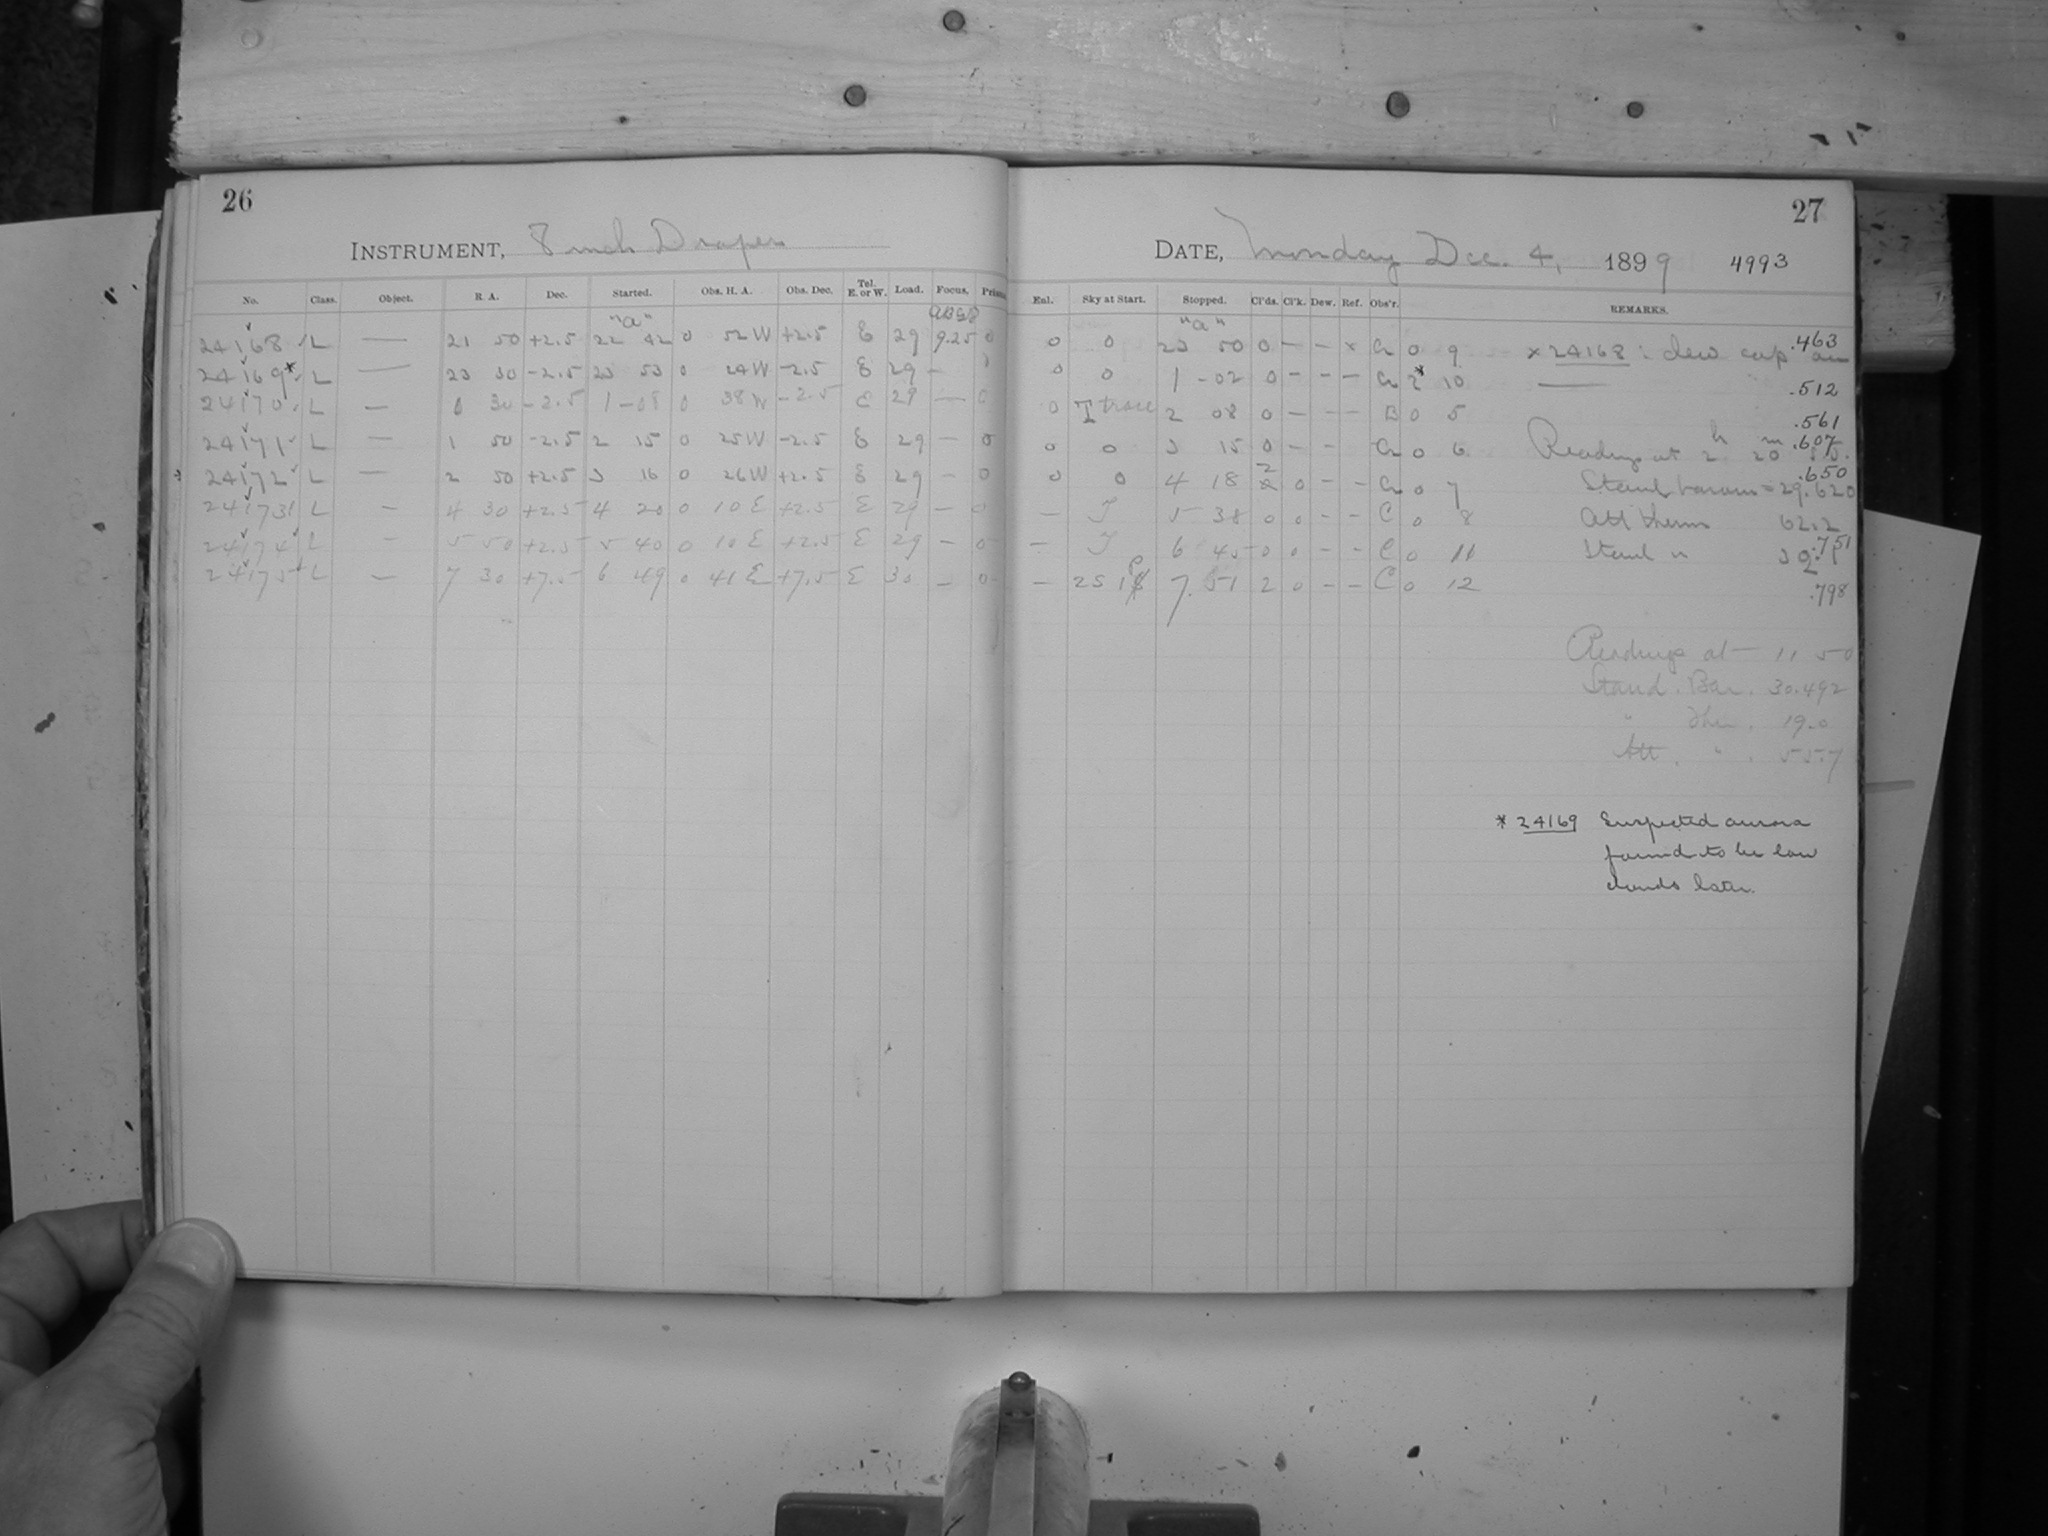 26
27
INSTRUMENT, 8 inch Draper
DATE, Monday Dec. 4, 1899 4993
No. Class. Object. R. A. Dec. Started. Obs. H. A. Obs. Dec. Tel. E. or W. Load. Focus. Prism
Enl. Sky at Start. Stopped. Cl'ds. Cl'k. Dew. Ref. Obs'r. REMARKS.
"a" "a"
24168 L — 21 50 +2.5 22 42 0 52 W +2.5 E 29 9.25 0 0 0 23 50 0 — — x 0 9 x 24168: dew cap on .463
24169* L — 23 30 -2.5 23 53 0 24 W -2.5 E 29 — 0 0 1 02 0 - - — 2* 10 — .512
24170 L — 0 30 -2.5 1 08 0 38 W -2.5 E 29 — 0 0 I trace 2 08 0 — - - B 0 5 .561
24171 L — 1 50 -2.5 2 15 0 25 W -2.5 E 29 — 0 0 0 3 15 0 - - 0 6 Readings at 2 h 20 m .607
24172 L — 2 50 +2.5 3 16 0 26 W +2.5 E 29 — 0 0 0 4 18 2 0 - - 0 7 Stand barom = 29.620 .650
24173 L — 4 30 +2.5 4 20 0 10 E +2.5 E 29 — 0 — I 5 38 0 0 - - C 0 8 Att therm 62.2
24174 L — 5 50 +2.5 5 40 0 10 E +2.5 E 29 — 0 — I 6 45 0 0 - - C 0 11 Stand " .751
24175 L — 7 30 +7.5 6 49 0 41 E +7.5 E 30 — 0 — 25 1 P 7 51 2 0 - - C 0 12 .798
Readings at — 11 50
Stand. Bar. 30.492
" Ther. 19.0
Att. " . 55.7
* 24169 Suspected aurora
found to be low
clouds later.